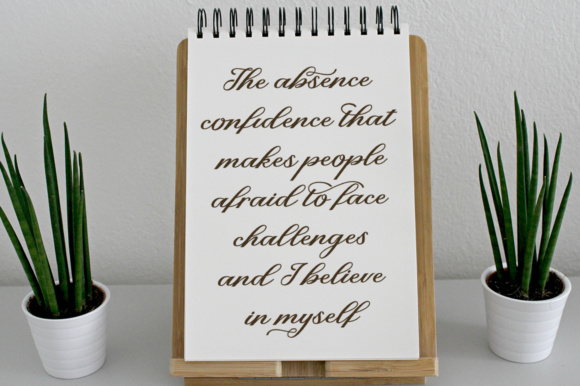 The absence
confidence that
makes people
afraid to face
challenges
and I believe
in myself